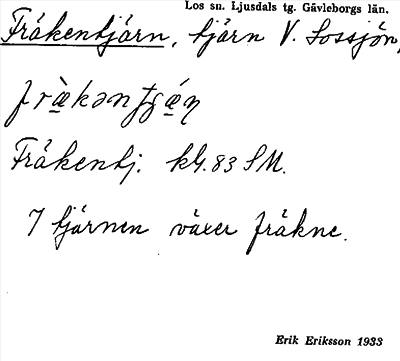 Los sn. Ljusdals tg. Gävleborgs län.
Fräkentjärn, tjärn V. Lossjön,
Fräkentj. kbl. 83 SM.
I tjärnen växer fräkne.
Erik Eriksson 1933